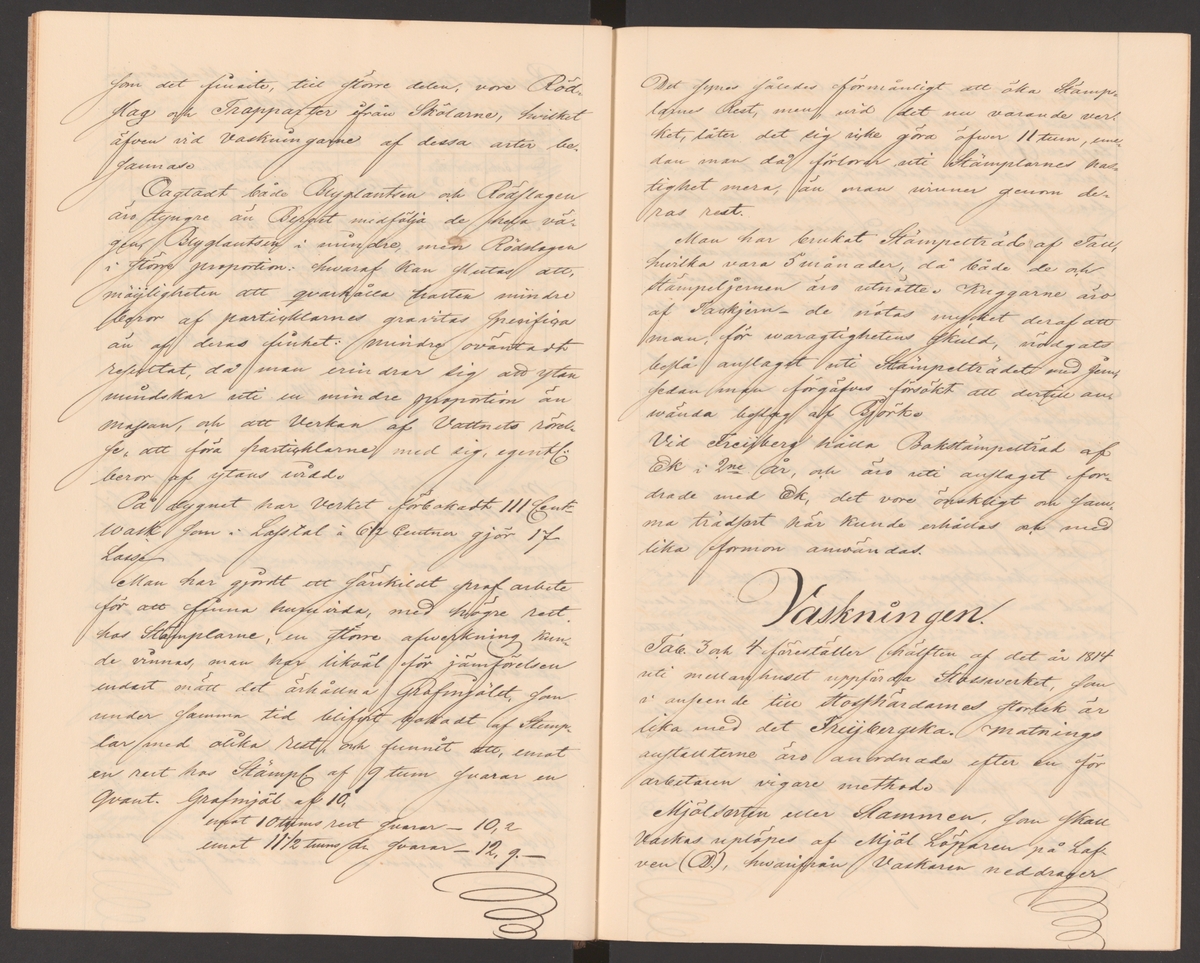 som det finaste, till större delen, vore Röd-
slag och Trapparter ifrån Skölarne, hvilket
äfven vid Vaskningarne af dessa arter be-
sannas.
Oagtadt både Blyglantsen och Rödslagen
äro tyngre än Berget medfölja de hela vä-
gen, Blyglantsen i mindre, men Rödslagen
i större proportion: hwaraf kan slutas att,
möjligheten att qvarhålla halten mindre
beror af partiklarnes gravitas spesifiqa
än af deras finhet: mindre oväntadt
resultat, då man erindrar sig att ytan
mindskar uti en mindre proportion än
massan, och att Verkan af Vattnets rörel-
se, att föra partiklarne med sig, egentl:
beror af ytans vidd.
På dygnet har Verket förbokadt 111 Cent
wask som i Lasstal à 6½ Centner gjör 17
Lass
Man har gjordt ett särskildt prof arbete
för att finna huruvida, med högre rest
hos Stämplarne, en större afwerkning kun-
de vinnas, man har likväl för jämförelsen
endast mätt det ärhållna Grofmjölet, som
under samma tid blifvit bokadt af Stemp-
lar med olika rest, och funnit att, emot
en rest hos Stämpl af 9 tum svarar en
Qvant. Grofmjöl af 10,
emot 10 tums rest svarar — 10,2
emot 11½ tums do svarar — 12,9.—
Det synes således förmånligt att öka Stämp-
larnes Rest, men vid det nu varande ver-
ket, låter det sig icke göra öfwer 11 tum, eme-
dan man då förlorar uti Stämplarnes has-
tighet mera, än man vinner genom de-
ras rest.
Man har brukat Stämpelträd af Tall,
hvilka vara 5 månader, då både de och
Stämpeljernen äro utnötte. Kuggarne äro
af Tackjern — de nötas mycket deraf att
man, för waragtighetens skuld, nödgats
beslå anslaget uti Stämpelträdet med jern,
sedan man förgäfves försökt att dertill an-
wända beslag af Björk.
Vid Freijberg hålla Bokstämpelträd af
Ek i 2ne År, och äro uti anslaget fo-
drade med Ek, det vore önskligt om sam-
ma trädsort här kunde erhållas och med
lika formon användas.
Vaskningen.
Tab. 3 och 4 föreställer hälften af det år 1814
uti mellanhuset uppförda Stosswerket, som
i anseende till stosshärdarnes storlek är
lika med det Freijbergska. Matnings
anstalterne äro anordnade efter en för
arbetaren vigare method.
Mjölsorten eller Slammen, som skall
Vaskas uplöpes af Mjöl Löparen på Laf-
ven (D.), hwarifrån Vaskaren neddrager